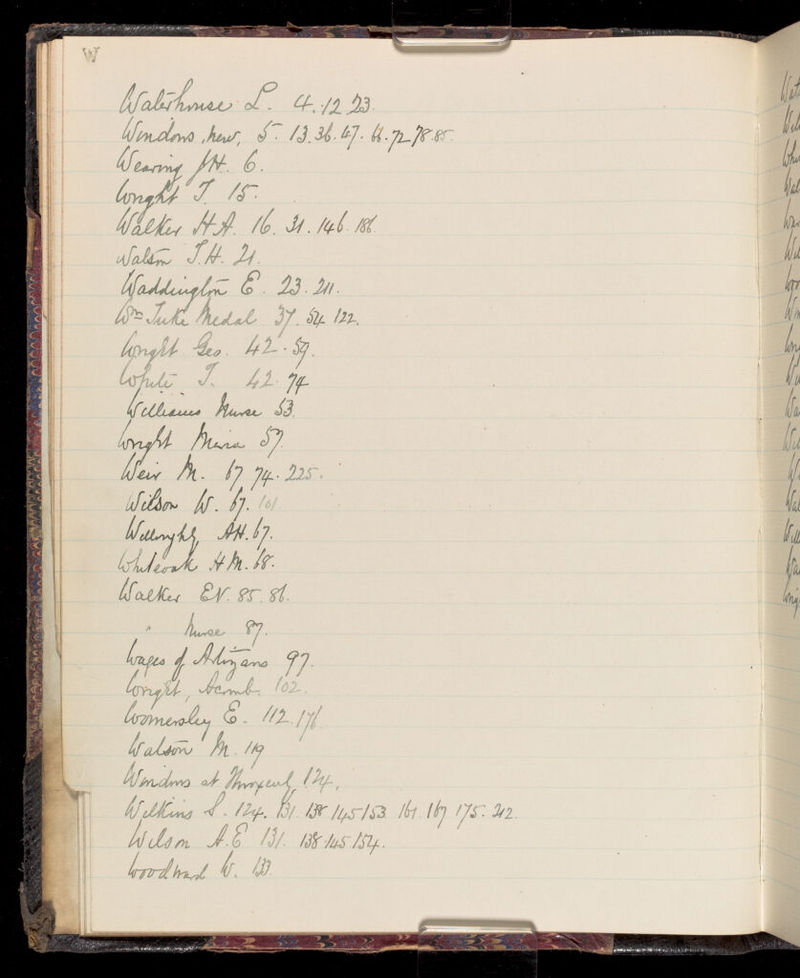 W
Waterhouse L. 4. 12 23.
Windows, New, 5. 13. 36. 47. 61. 72 78. 85.
Wearing J H. 6.
Wright T. 15.
Walker H A. 16. 31. 146. 186
Watson T. H. 21.
Waddington E. 23. 211.
Wm Tuke Medal 37. 54 122.
Wright Geo. 42. 59.
White T. 42. 74
Williams Nurse 53.
Wright Maria 57.
Weir M. 67 74. 225.
Wilson W. 67. 101
Willoughby AH. 67.
Whiteoak H M. 68.
Walker EV. 85. 86.
" Nurse 87.
Wages of Artizans 97.
Wright, Acomb. 102.
Woomersley E. 112. 176
Watson M. 119
Windows at 124.
Wilkins S. 124. 131 138 145 153 161. 167 175. 212.
Wilson A. E 131. 138 145 154.
Woodward W. 133